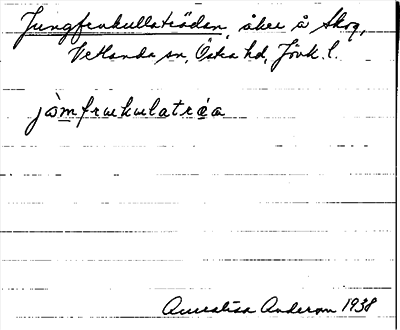 Jungfrukullaträdan, åker å Skog,
Vetlanda sn, Östra hd, Jönk. l.
jòmfrukulatrɛ́a
Annalisa Anderson 1938